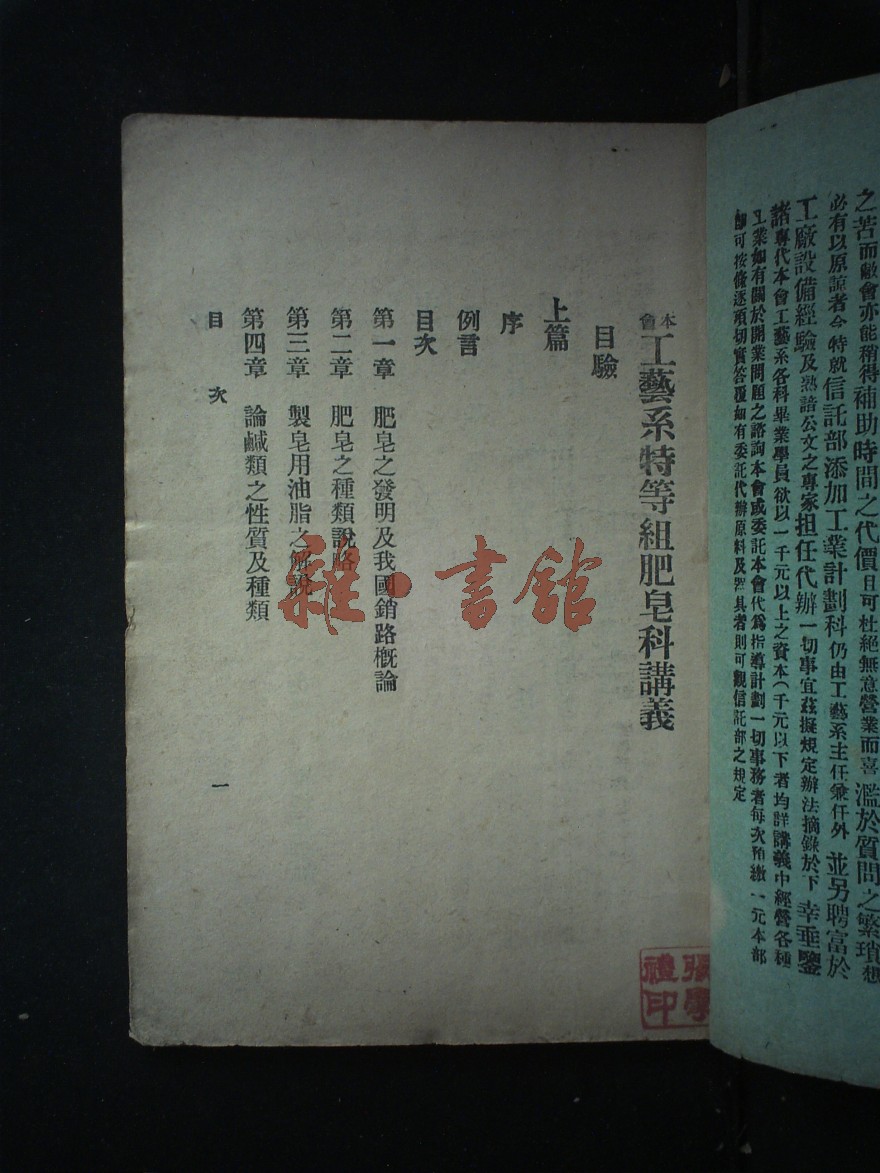 之苦而敝會亦能稍得補助時間之代價且可杜絕無意營業而喜濫於質問之繁瑣想
必有以原諒者今特就信託部添加工業計劃科仍由工藝系主任兼任外並另聘富於
工廠設備經驗及熟諳公文之專家担任代辦一切事宜茲擬規定辦法摘錄於下幸垂鑒
諸專代本會工藝系各科畢業學員欲以一千元以上之資本(千元以下者均詳講義中經營各種
工業如有關於開業問題之諮詢本會或委託本會代爲指導計劃一切事務者每次預繳一元本部
即可按條逐項切實答覆如有委託代辦原料及器具者則可觀信託部之規定
本會工藝系特等組肥皂科講義
目驗
上篇
序
例言
目次
第一章 肥皂之發明及我國銷路概論
第二章 肥皂之種類說略
第三章 製皂用油脂之解說
第四章 論鹹類之性質及種類
目次 一
張學禮印
雜·書館